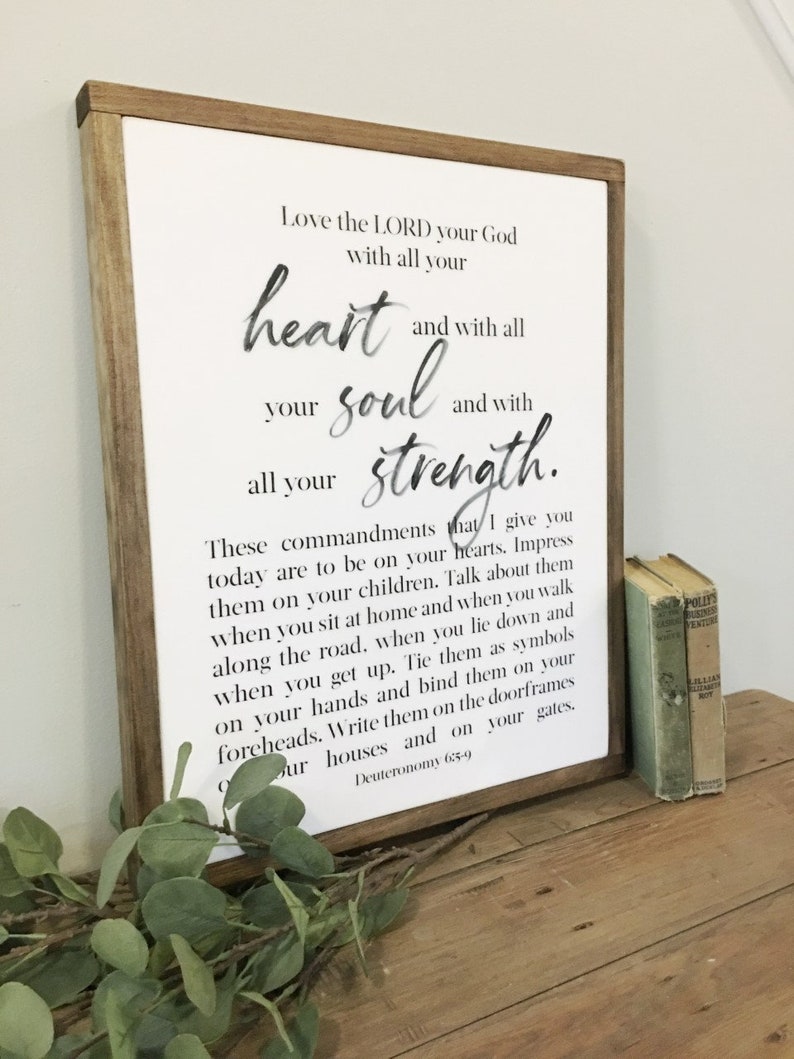 Love the LORD your God
with all your
heart and with all
your soul and with
all your strength.
These commandments that I give you
today are to be on your hearts. Impress
them on your children. Talk about them
when you sit at home and when you walk
along the road, when you lie down and
when you get up. Tie them as symbols
on your hands and bind them on your
foreheads. Write them on the doorframes
houses and on your gates.
Deuteronomy 6:5-9
POLLY'S
BUSINESS
VENTURE
LILLIAN
ELIZABETH
ROY
GROSSET
& DUNLAP